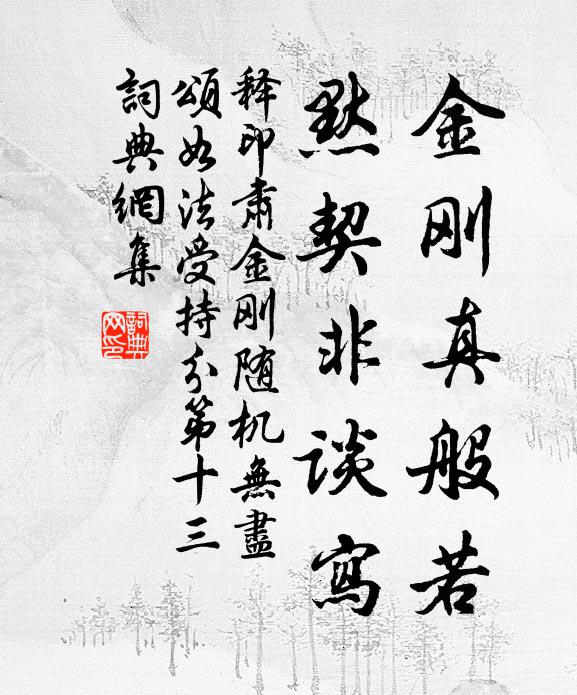 金刚真般若
默契非谈寫
释印肃金刚随机無盡
頌如法受持分第十三
詞典網集
詞典网印